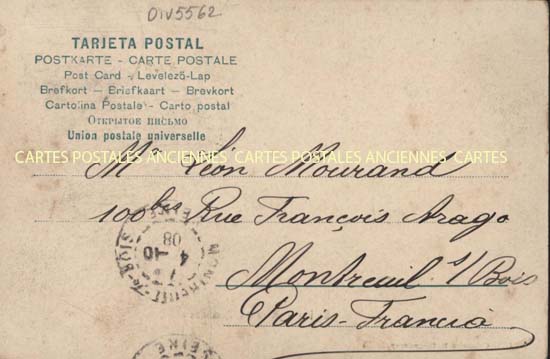 OIV5562
TARJETA POSTAL
POSTKARTE - CARTE POSTALE
Post Card - Levelező-Lap
Brefkort — Briefkaart — Brevkort
Cartolina Postale - Carto postal
Открытое письмо
Union postale universelle
CARTES POSTALES ANCIENNES CARTES POSTALES ANCIENNES CARTES
Mr Léon Mourand
100bis Rue François Arago
Montreuil s/ Bois
Paris-Francia
4 - 10
08